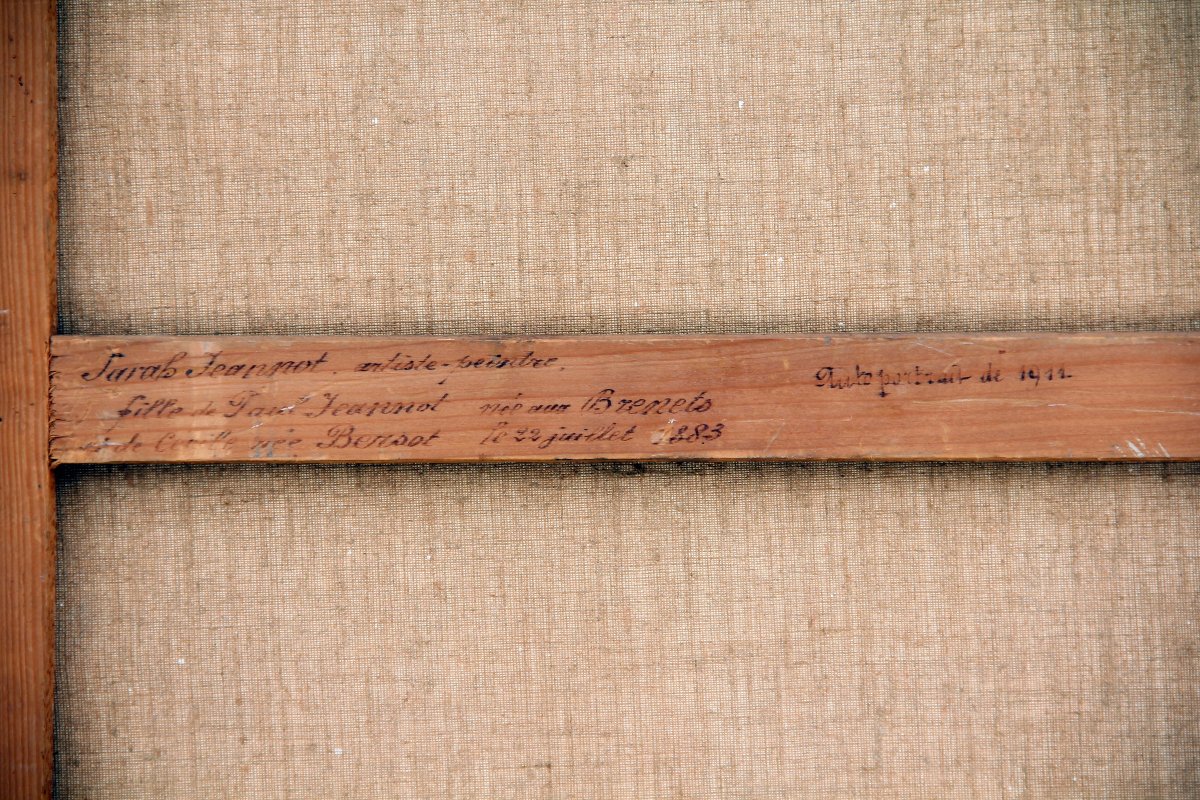 Sarah Jeannot, artiste-peintre,
fille de Paul Jeannot née aux Brenets
et de Cécile née Bersot le 22 juillet 1883
Autoportrait de 1911